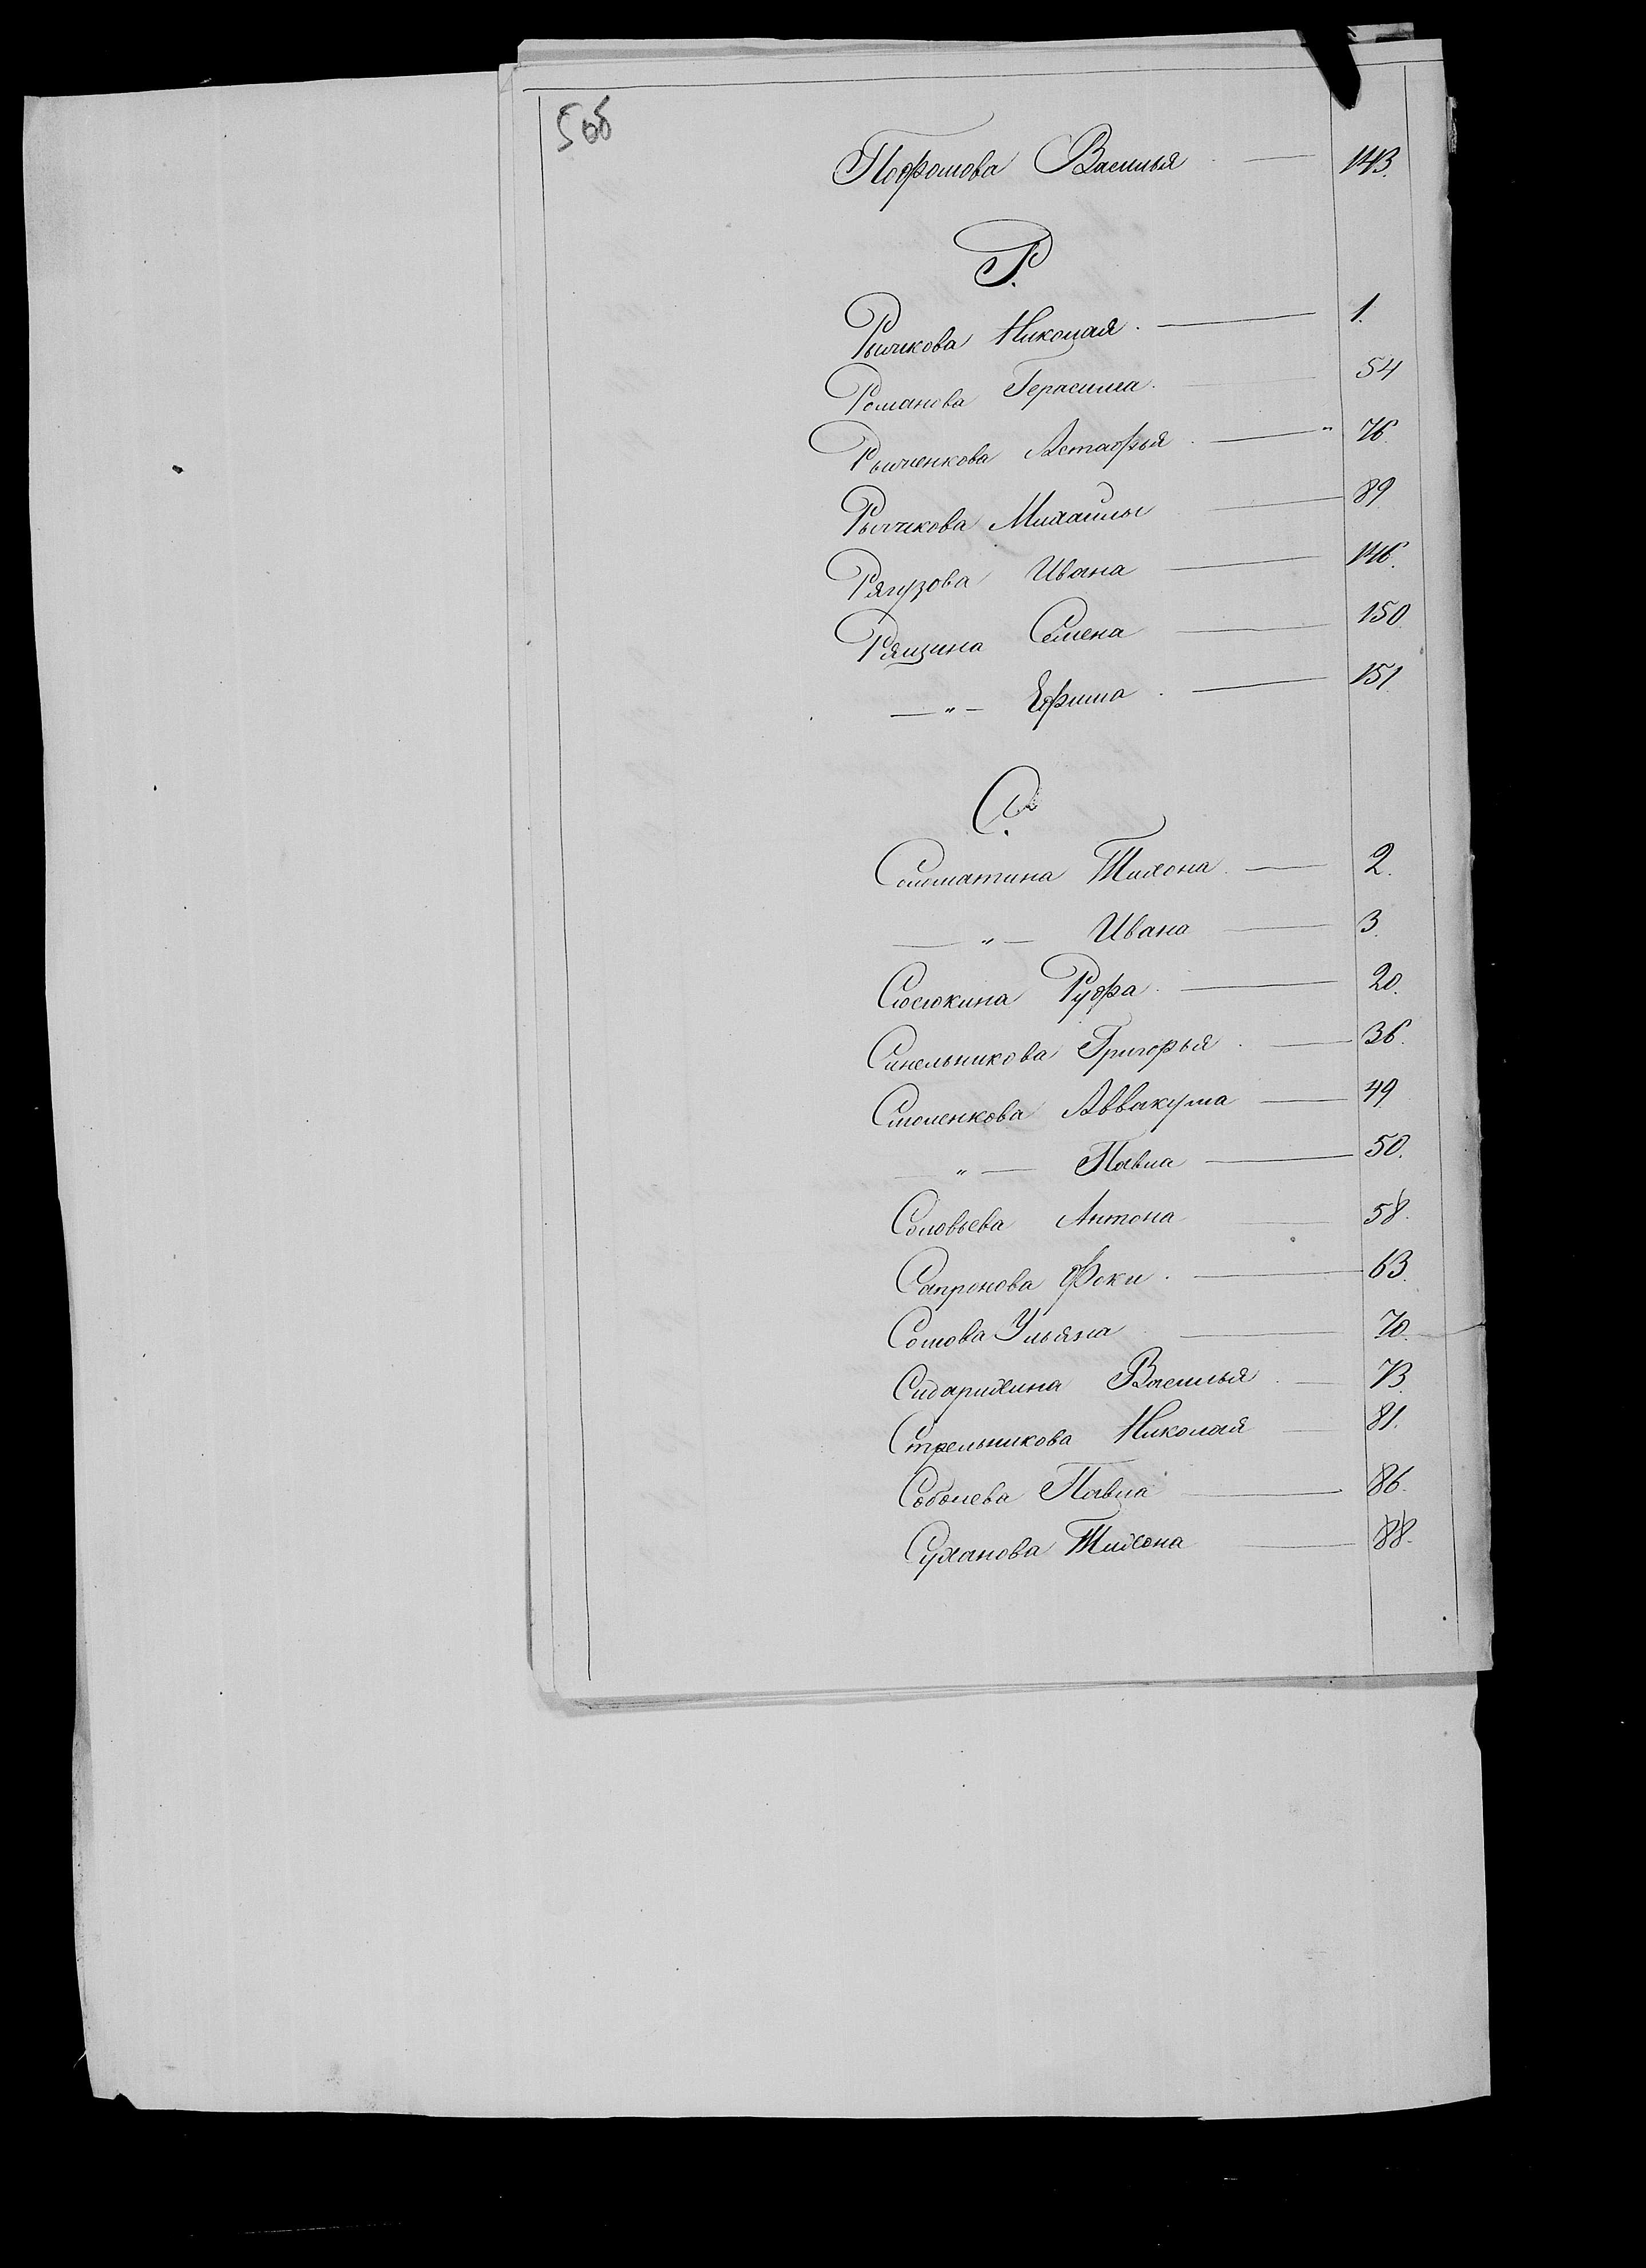 5об
Пофомова Василья — 143.
Р.
Рычкова Николая. — 1.
Романова Герасима. — 54
Рыченкова Астафья. — " 76.
Рычкова Михаилы — 89
Рягузова Ивана — 146.
Рящина Семена — 150
— " — Ефима. — 151.
С.
Соломатина Тихона. — 2.
— " — Ивана — 3.
Сюсюкина Руфа. — 20.
Синельникова Григорья. — 36.
Смоленкова Аввакума — 49
— " — Павла — 50.
Соловьева Антона — 58.
Сапронова Фоки. — 63.
Сомова Ульяна — 70.
Сидарихина Василья. — 73.
Стрельникова Николая — 81.
Соболева Павла — 86.
Суханова Тихона — 88.